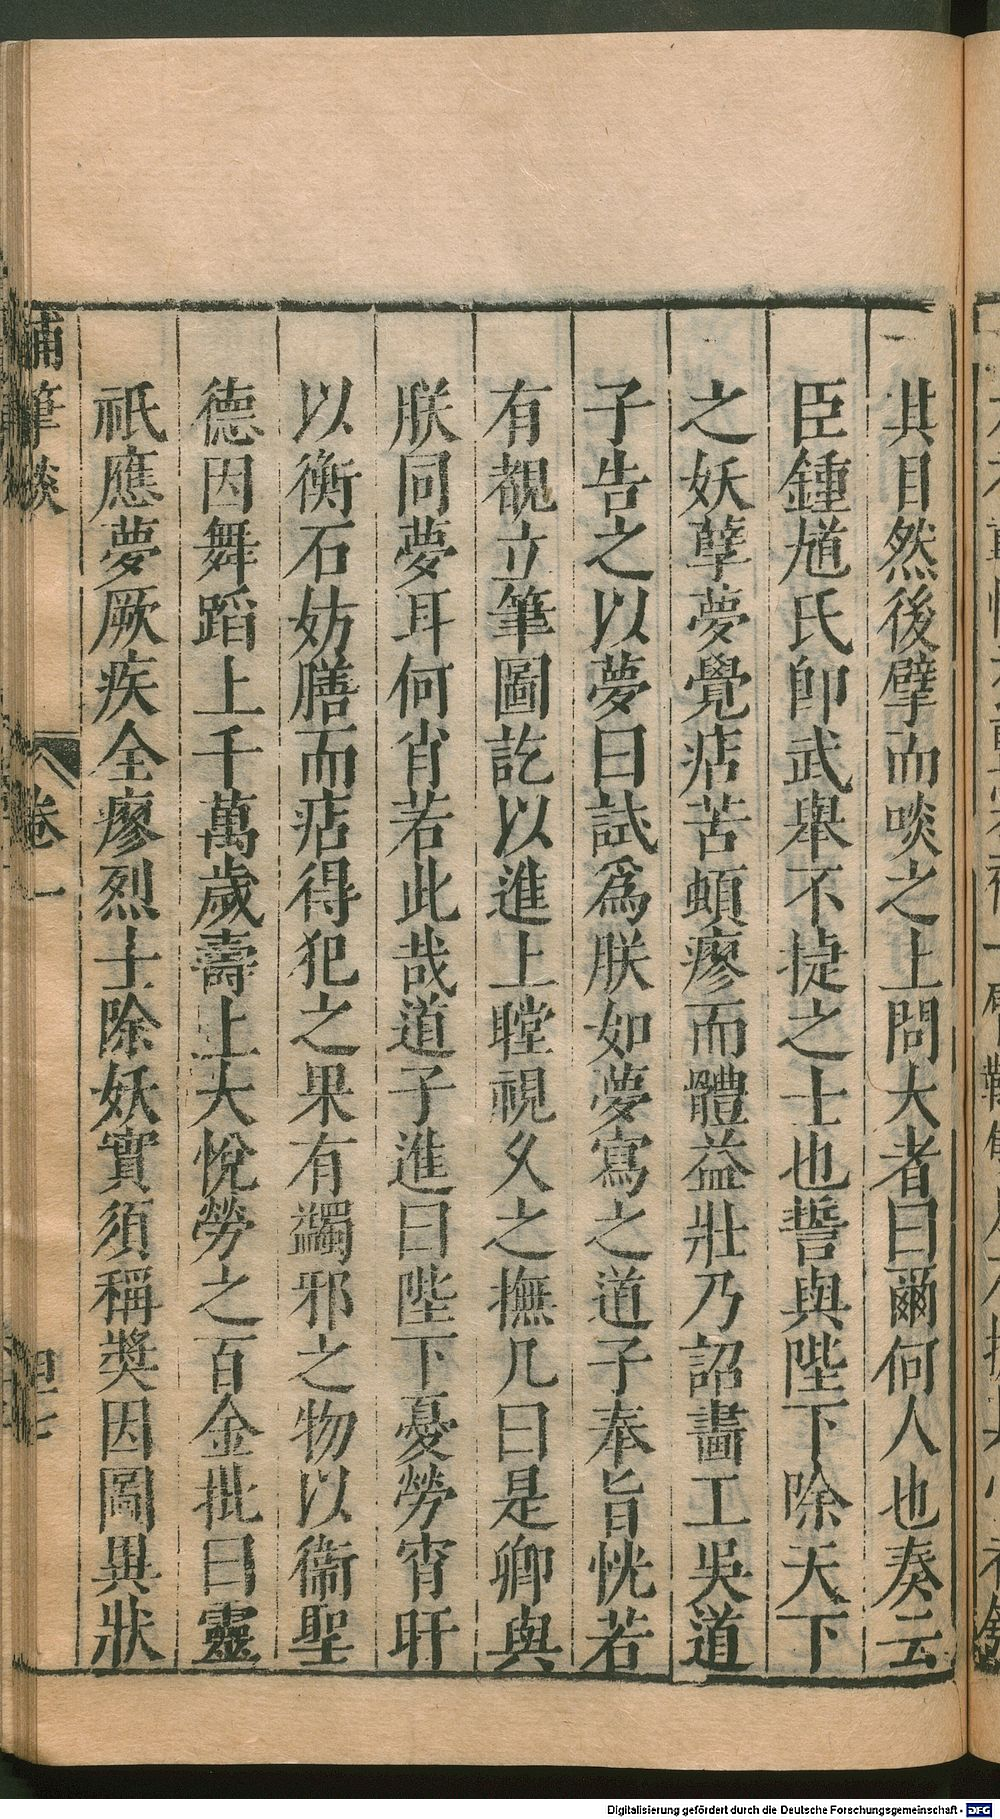 其目然後擘而啖之上問大者曰爾何人也奏云
臣鍾馗氏卽武舉不捷之士也誓與陛下除天下
之妖孽夢覺痁苦頓瘳而體益壯乃詔畵工吳道
子告之以夢曰試爲朕如夢寫之道子奉旨恍若
有覩立筆圖訖以進上瞠視久之撫几曰是卿與
朕同夢耳何肖若此哉道子進曰陛下憂勞宵旰
以衡石妨膳而痁得犯之果有蠲邪之物以衞聖
德因舞蹈上千萬歲壽上大悅勞之百金批曰靈
祇應夢厥疾全瘳烈士除妖實須稱奬因圖異狀
補筆談
卷一
Digitalisierung gefördert durch die Deutsche Forschungsgemeinschaft - DFG